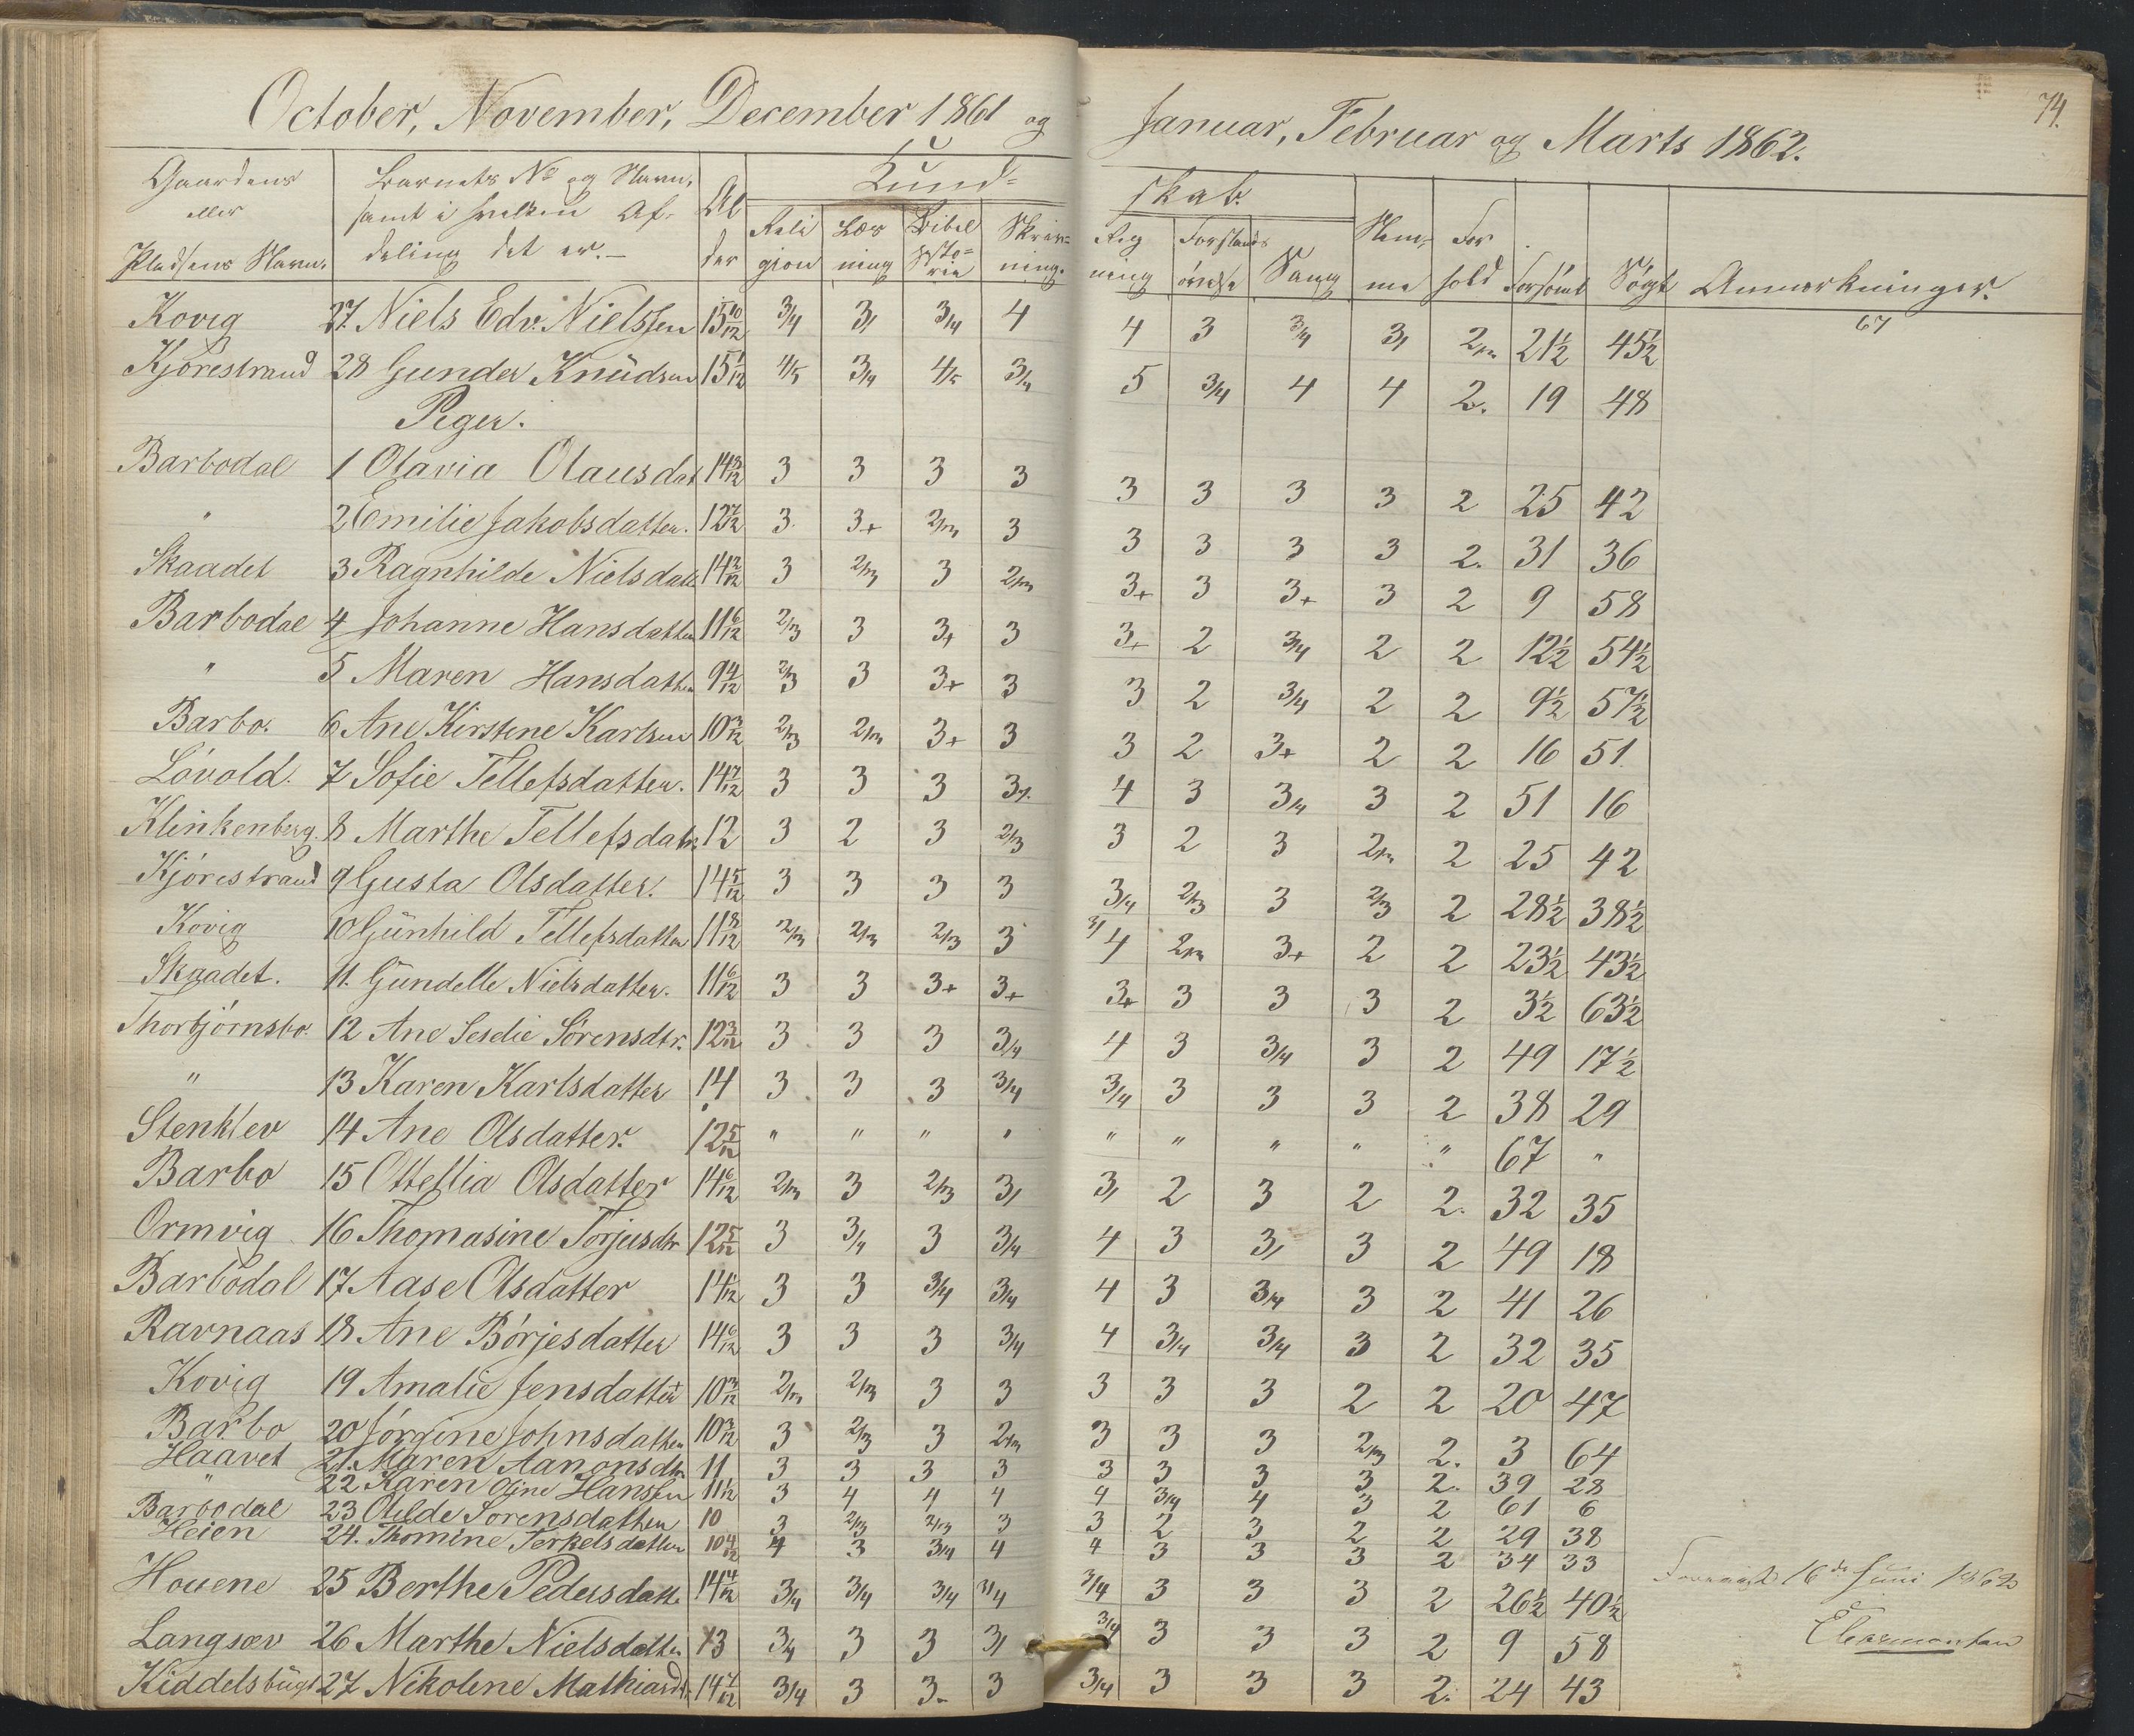 74.
October, November, December 1861 og Januar, Februar og Marts 1862.
Gaardens eller Pladsens Navn. Barnets No og Navn, samt i hvilken Afdeling det er. Alder Kundskab. Religion Læsning Bibelhistorie Skrivning. Regning Forstandsøvelse Sang Nemme Forhold Forsömt Søgt Anmærkninger.
67
Kovig 27. Niels Edv. Nielssen 15 10/12 3/4 3/ 3/4 4 4 3 3/4 3/ 2/3 21 1/2 45 1/2
Kjörestrand 28 Gunder Knüdsen 15 1/12 4/5 3/4 4/5 3/4 5 3/4 4 4 2. 19 48
Piger.
Barbodal 1 Olavia Olausdat 14 8/12 3 3 3 3 3 3 3 3 2 25 42
" 2 Emilie Jakobsdatter. 12 7/12 3 3+ 2/3 3 3 3 3 3 2. 31 36
Skaadet 3 Ragnhilde Nielsdatt 14 2/12 3 2/3 3 2/3 3+ 3 3+ 3 2 9 58
Barbodal 4 Johanne Hansdatter 11 6/12 2/3 3 3+ 3 3+ 2 3/4 2 2 12 1/2 54 1/2
" 5 Maren Hansdatter 9 4/12 2/3 3 3+ 3 3 2 3/4 2 2 9 1/2 57 1/2
Barbo. 6 Ane Kirstine Karlsen 10 3/12 2/3 2/3 3+ 3 3 2 3+ 2 2 16 51
Lövold. 7 Sofie Tellefsdatter. 14 7/12 3 3 3 3/. 4 3 3/4 3 2 51 16
Klinkenberg. 8 Marthe Tellefsdatr. 12 3 2 3 2/3 3 2 3 2/3 2 25 42
Kjörestrand 9 Gusta Olsdatter. 14 5/12 3 3 3 3 3/4 2/3 3 2/3 2 28 1/2 38 1/2
Kovig 10 Günhild Tellefsdatter 11 8/12 2/3 2/3 2/3 3 3/4 2/3 3+ 2 2 23 1/2 43 1/2
Skaadet. 11. Gündelle Nielsdatter. 11 6/12 3 3 3+ 3+ 3+ 3 3 3 2 3 1/2 63 1/2
Thorbjörnsbo. 12 Ane Seselie Sörensdtr. 12 3/12 3 3 3 3/4 4 3 3/4 3 2 49 17 1/2
" 13 Karen Karlsdatter 14 3 3 3 3/4 3/4 3 3 3 2 38 29
Stenklev 14 Ane Olsdatter. 12 5/12 " " " " " " " " " 67 "
Barbo 15 Ottellia Olsdatter 14 6/12 2/3 3 2/3 3/ 3/ 2 3 2 2. 32 35
Ormvig 16 Thomasine Torjusdtr 12 5/12 3 3/4 3 3/4 4 3 3/ 3 2 49 18
Barbodal 17 Aase Olsdatter 14 1/12 3 3 3/4 3/4 4 3 3/4 3 2 41 26
Ravnaas 18 Ane Börjesdatter 14 6/12 3 3 3 3/4 4 3/4 3/4 3 2 32 35
Kovig 19 Amalie Jensdatter 10 3/12 2/3 2/3 3 3 3 3 3 2 2 20 47
Barbo 20 Jörgine Johnsdatter 10 3/12 3 2/3 3 2/3 3 3 3 2/3 2. 3 64
Haavet 21. Maren Aanonsdtr. 11 3 3 3 3 3 3 3 3 2. 39 28
" 22 Karen Oline Hanssen 11 1/12 3 4 4 4 4 3/4 4 3 2 61 6
Barbodal 23 Olilde Sorensdatter 10 3 2/3 2/3 3 3 2 3 2 2 29 38
Heien 24. Thomine Terkelsdatter 10 4/12 4 3 3/4 4 4 3 3 3 2 34 33
Houene 25 Berthe Pedersdatt. 14 4/12 3/4 3/4 3/4 3/4 3/4 3 3 3 2 26 1/2 40 1/2
16de Juni 1862
Langsæv 26 Marthe Nielsdatter 13 3/4 3 3 3/ 3/4 3 3 3 2 9 58
Kiddelsbügt 27 Nikoline Mathiasdtr. 14 7/12 3/4 3 3- 3 3/4 3 3 3 2. 24 43